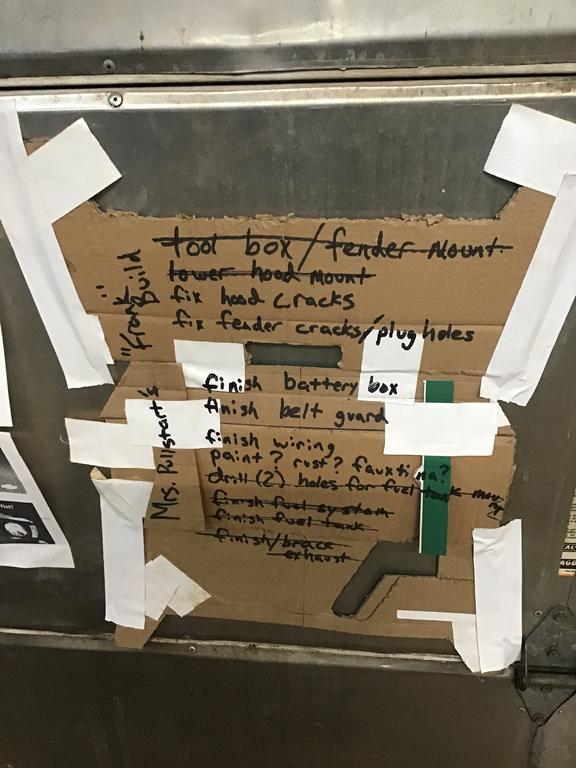 "Frank" Build
tool box/fender mount
lower hood mount
fix hood cracks
fix fender cracks/plug holes
Mrs. Pullstart's
finish battery box
finish belt guard
finish wiring
paint? rust? fauxtina?
drill (2) holes for fuel tank
finish fuel system
finish fuel tank
finish/brace
exhaust